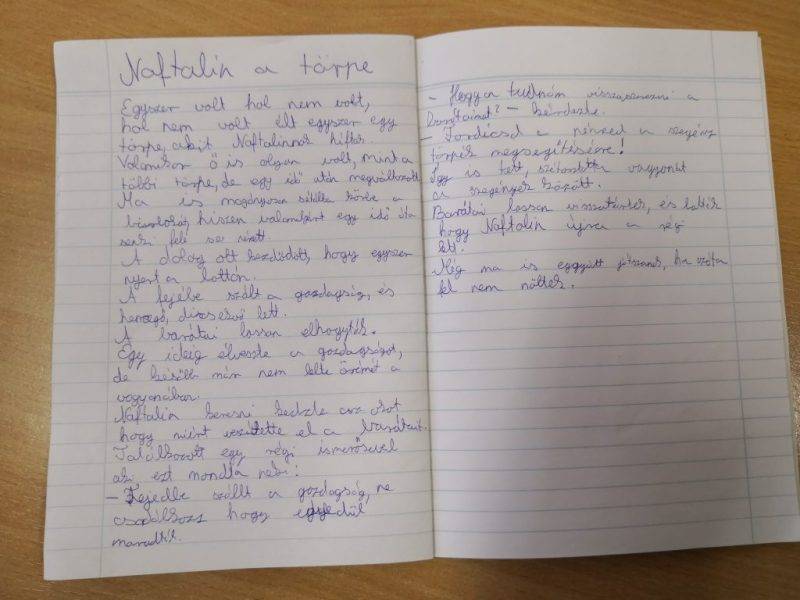 Naftalin a törpe
Egyszer volt hol nem volt,
hol nem volt élt egyszer egy
törpe, akit Naftalinnak hívtak.
Valamikor ő is olyan volt, mint a
többi törpe, de egy idő után megváltozott.
Ma is magányosan sétált körbe a
hiszen valamiért egy idő óta
senki felé se nézett.
A dolog ott kezdődött, hogy egyszer
nyert a lottón.
A fejébe szállt a gazdagság, és
hencegő, dicsekvő lett.
A barátai lassan elhagyták.
Egy ideig élvezte a gazdagságot,
de később már nem lelte örömét a
vagyonában.
Naftalin keresni kezdte az okot
hogy miért veszítette el a barátait.
Találkozott egy régi ismerősével
aki ezt mondta neki:
- Fejedbe szállt a gazdagság, ne
csodálkozz hogy egyedül
maradtál.
- Hogyan tudnám visszaszerezni a
barátaimat? - kérdezte.
- Fordítsd a pénzed a szegény
törpék megsegítésére!
Így is tett, szétosztotta vagyonát
a szegények között.
Barátai lassan visszatértek, és látták
hogy Naftalin újra a régi
lett.
Még ma is eggyütt játszanak, ha azóta
fel nem nőttek.